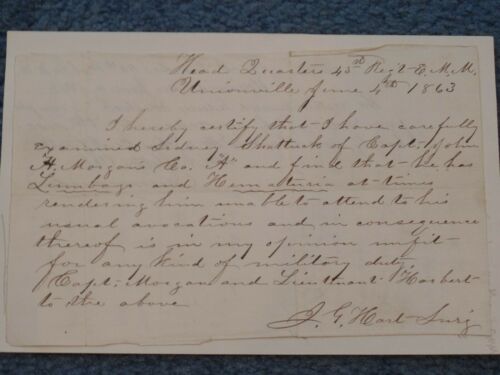 Head Quarters 45st Regt E.M.M.
Unionville June 4th 1863
I hereby certify that I have carefully
examined Sidney Shattuck of Capt; John
H. Morgans Co. "A" and find that he has
Lumbago and Hematuria at times
rendering him unable to attend to his
usual avocations and in consequence
thereof is in my opinion unfit
for any kind of military duty
Capt; Morgan and Lieutenant Harbert
to the above
J. G. Hart Surg